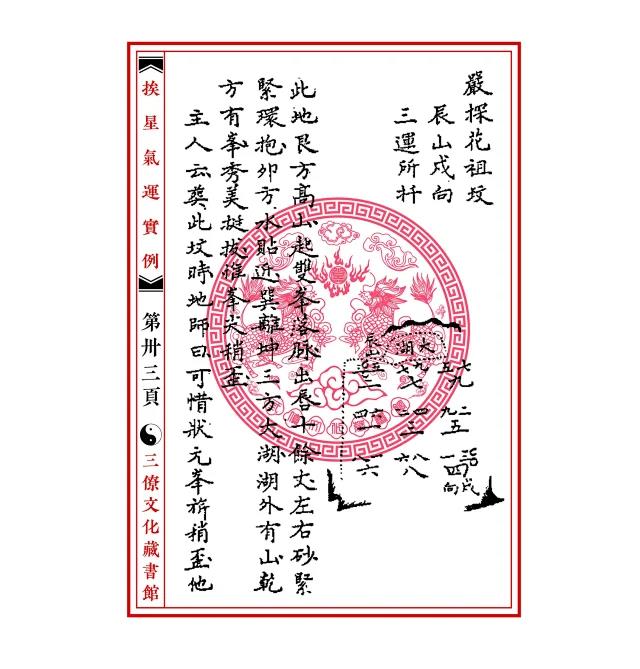 嚴探花祖坟
辰山戍向
三運所扦
此地艮方高山起雙峯落脉出唇十餘丈左右砂緊
緊環抱卯方水貼近巽離坤三方大湖湖外有山乾
方有峯秀美挺拔惟峯尖稍歪
主人云葬此坟時地師曰可惜狀元峯旂稍歪他
大湖
辰山
六 五 九
九 二 五
一 四
向
挨星氣運實例
第卅三頁
三僚文化藏書館